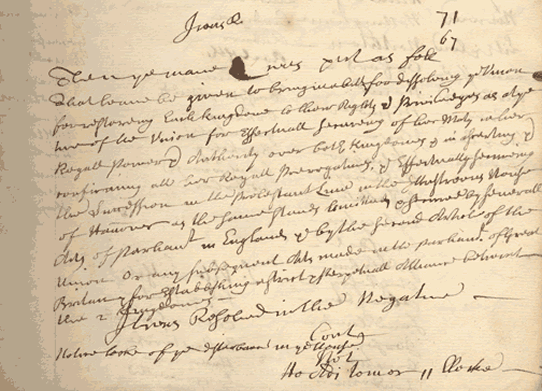 71
67
Then ye maine was put as foll
That leave be given to bring in a bill for dissolving ye Union
for restoring Each Kingdome to their Rights & Priviledges as at ye
time of the Union for Effectuall secureing of her Maty in her
Royall Power & Authority over both Kingdomes & in asserting &
confirming all her Royall Prerogatives, & Effectually secureing
the Succession in the Protestant Line in the Illustrious House
of Hanover as the same stands limitted & secured by severall
Acts of Parliamt in England & by the second Article of the
Union Or any subsequent Acts made in the Parliamt. of Great
Britain & for Establishing a strict & perpetuall Alliance between
the 2 Kingdomes
It was Resolved in the Negative
Cont
Not